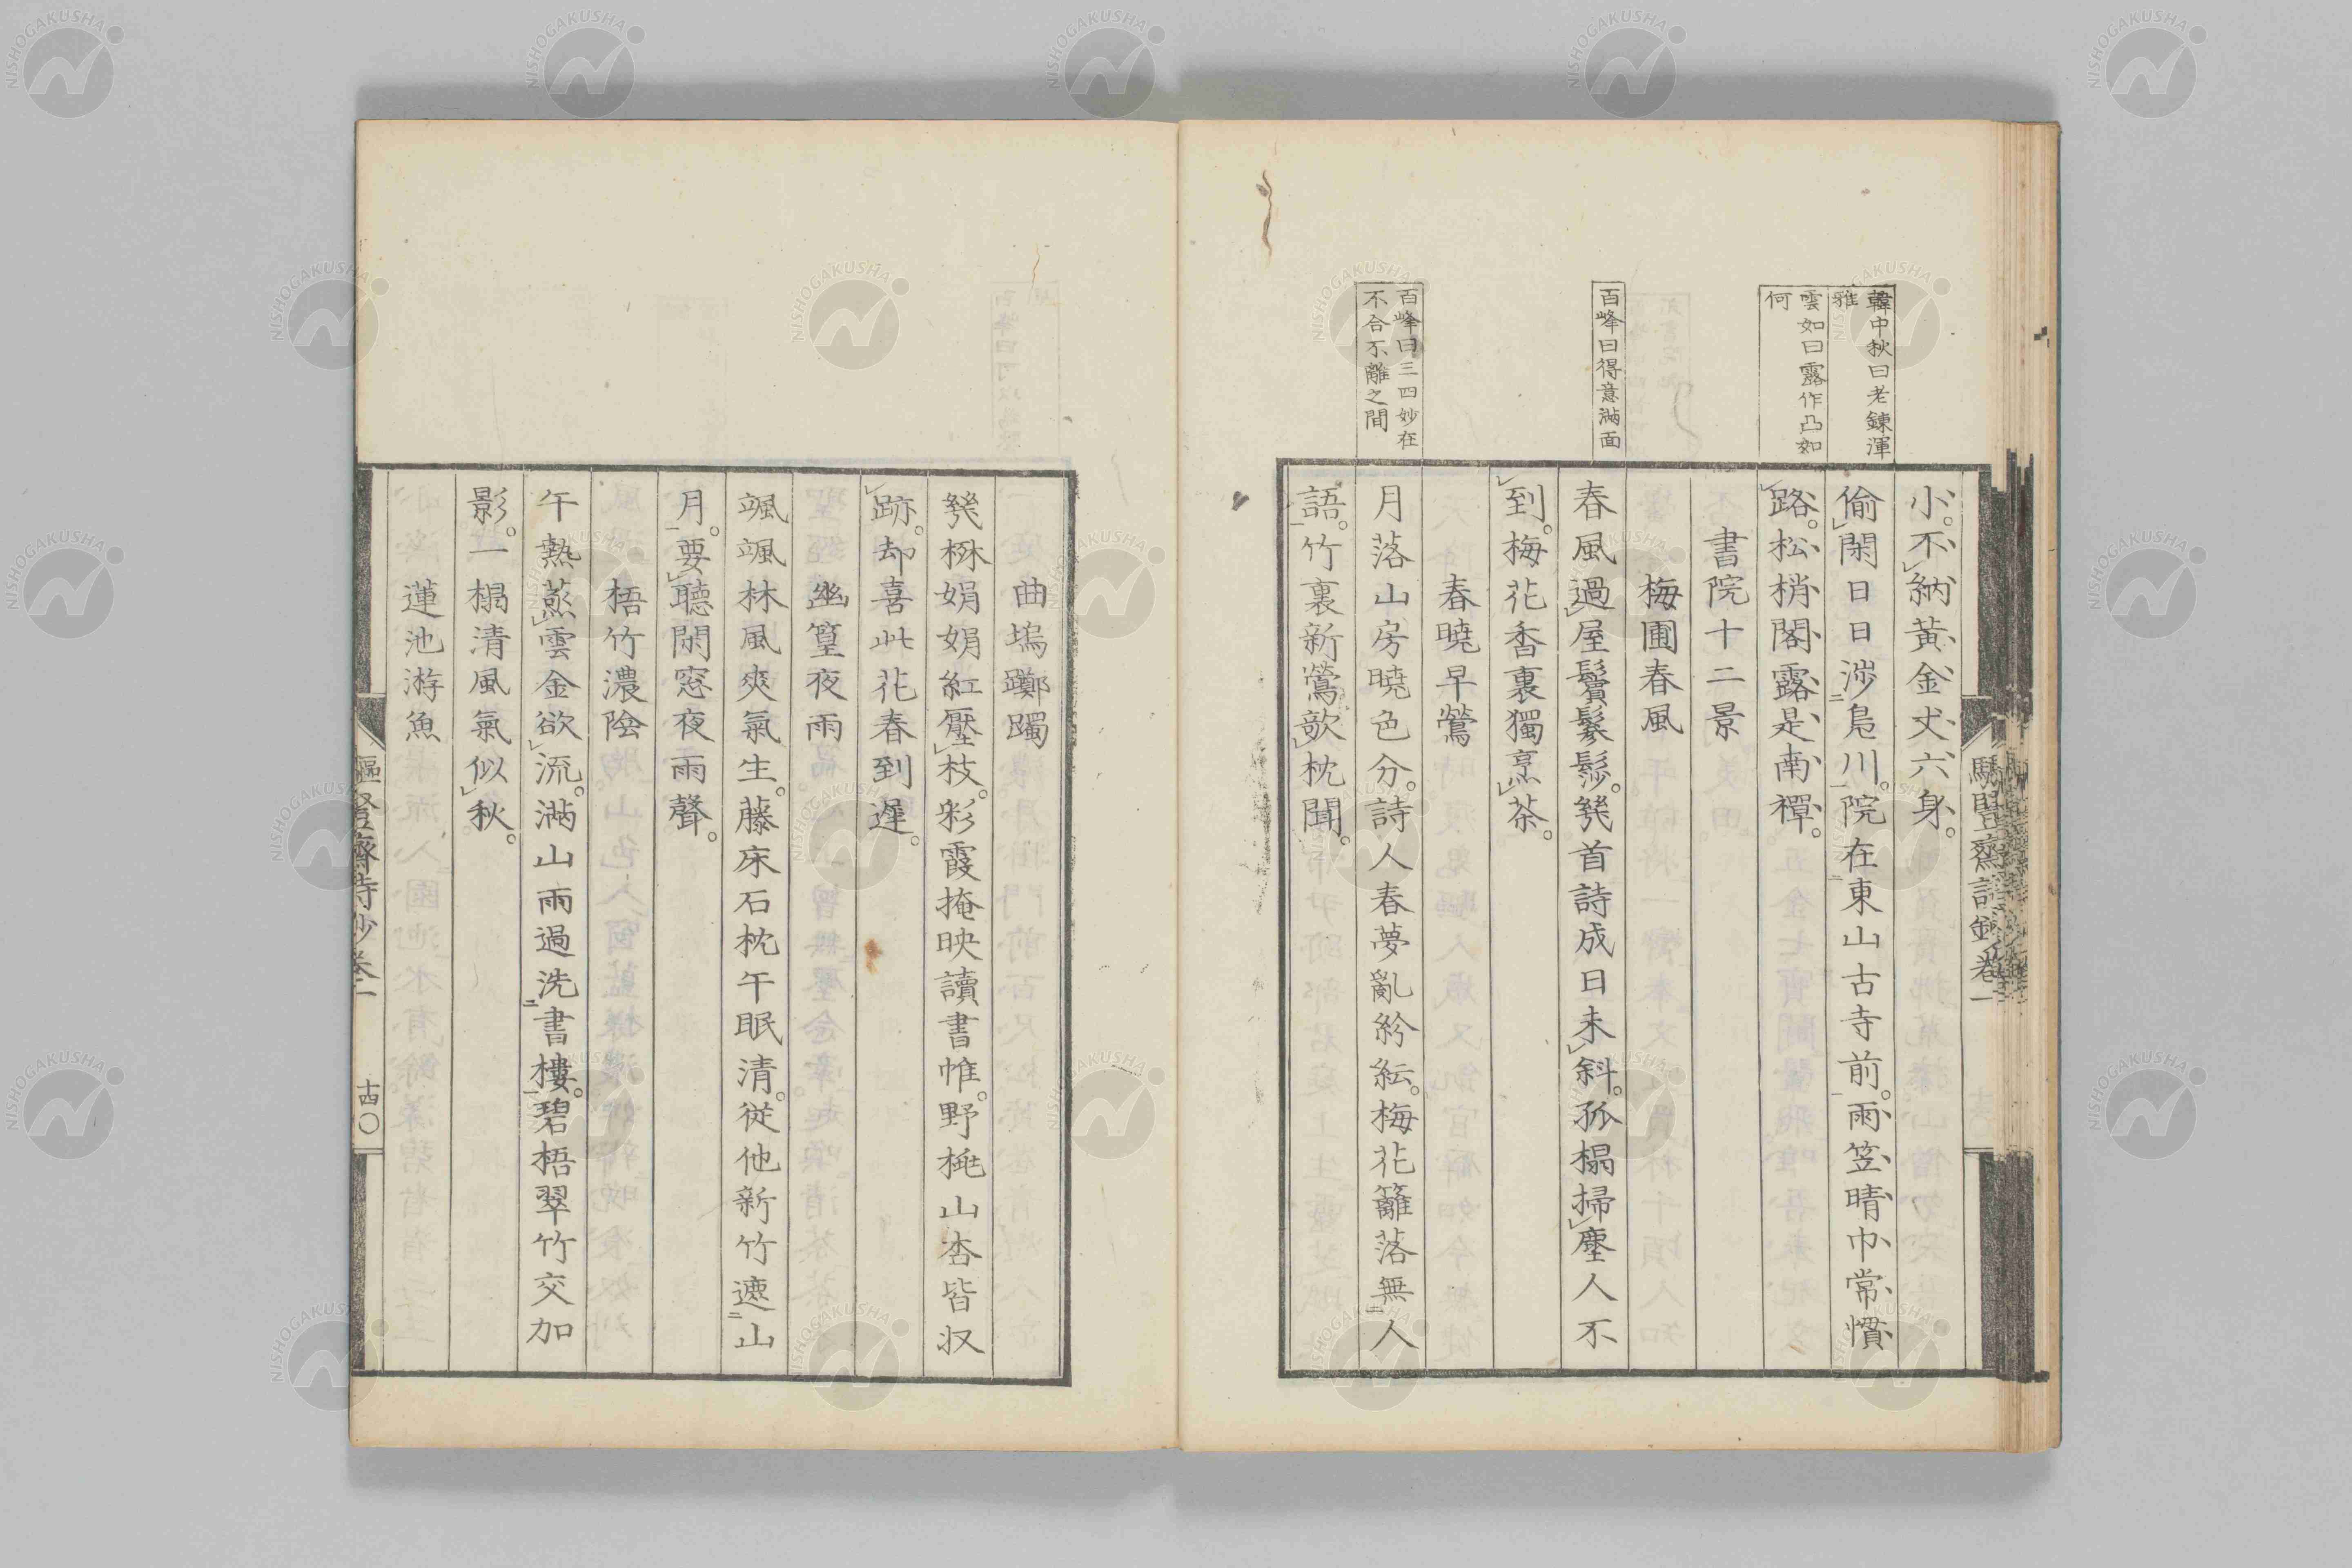 韓中秋曰老鍊渾
雅
雲如曰露作凸如
何
百峰曰得意滿面
百峰曰三四妙在
不合不離之間
小。不納黃金丈六身。
偷閑日日涉鳧川。院在東山古寺前。雨笠晴巾常慣
路。松梢閣露是南禪。
書院十二景
梅圃春風
春風過屋鬢鬖髿。幾首詩成日未斜。孤榻掃塵人不
到。梅花香裏獨烹茶。
春曉早鶯
月落山房曉色分。詩人春夢亂紛紜。梅花籬落無人
語。竹裏新鶯欹枕聞。
曲塢躑躅
幾株娟娟紅壓枝。彩霞掩映讀書帷。野桃山杏皆収
跡。却喜此花春到遲。
幽篁夜雨
颯颯林風爽氣生。藤床石枕午眠清。従他新竹遮山
月。要聽閑窓夜雨聲。
梧竹濃陰
午熱蒸雲金欲流。滿山雨過洗書樓。碧梧翠竹交加
影。一榻清風氣似秋。
蓮池游魚
十四〇
NISHOGAKUSHA